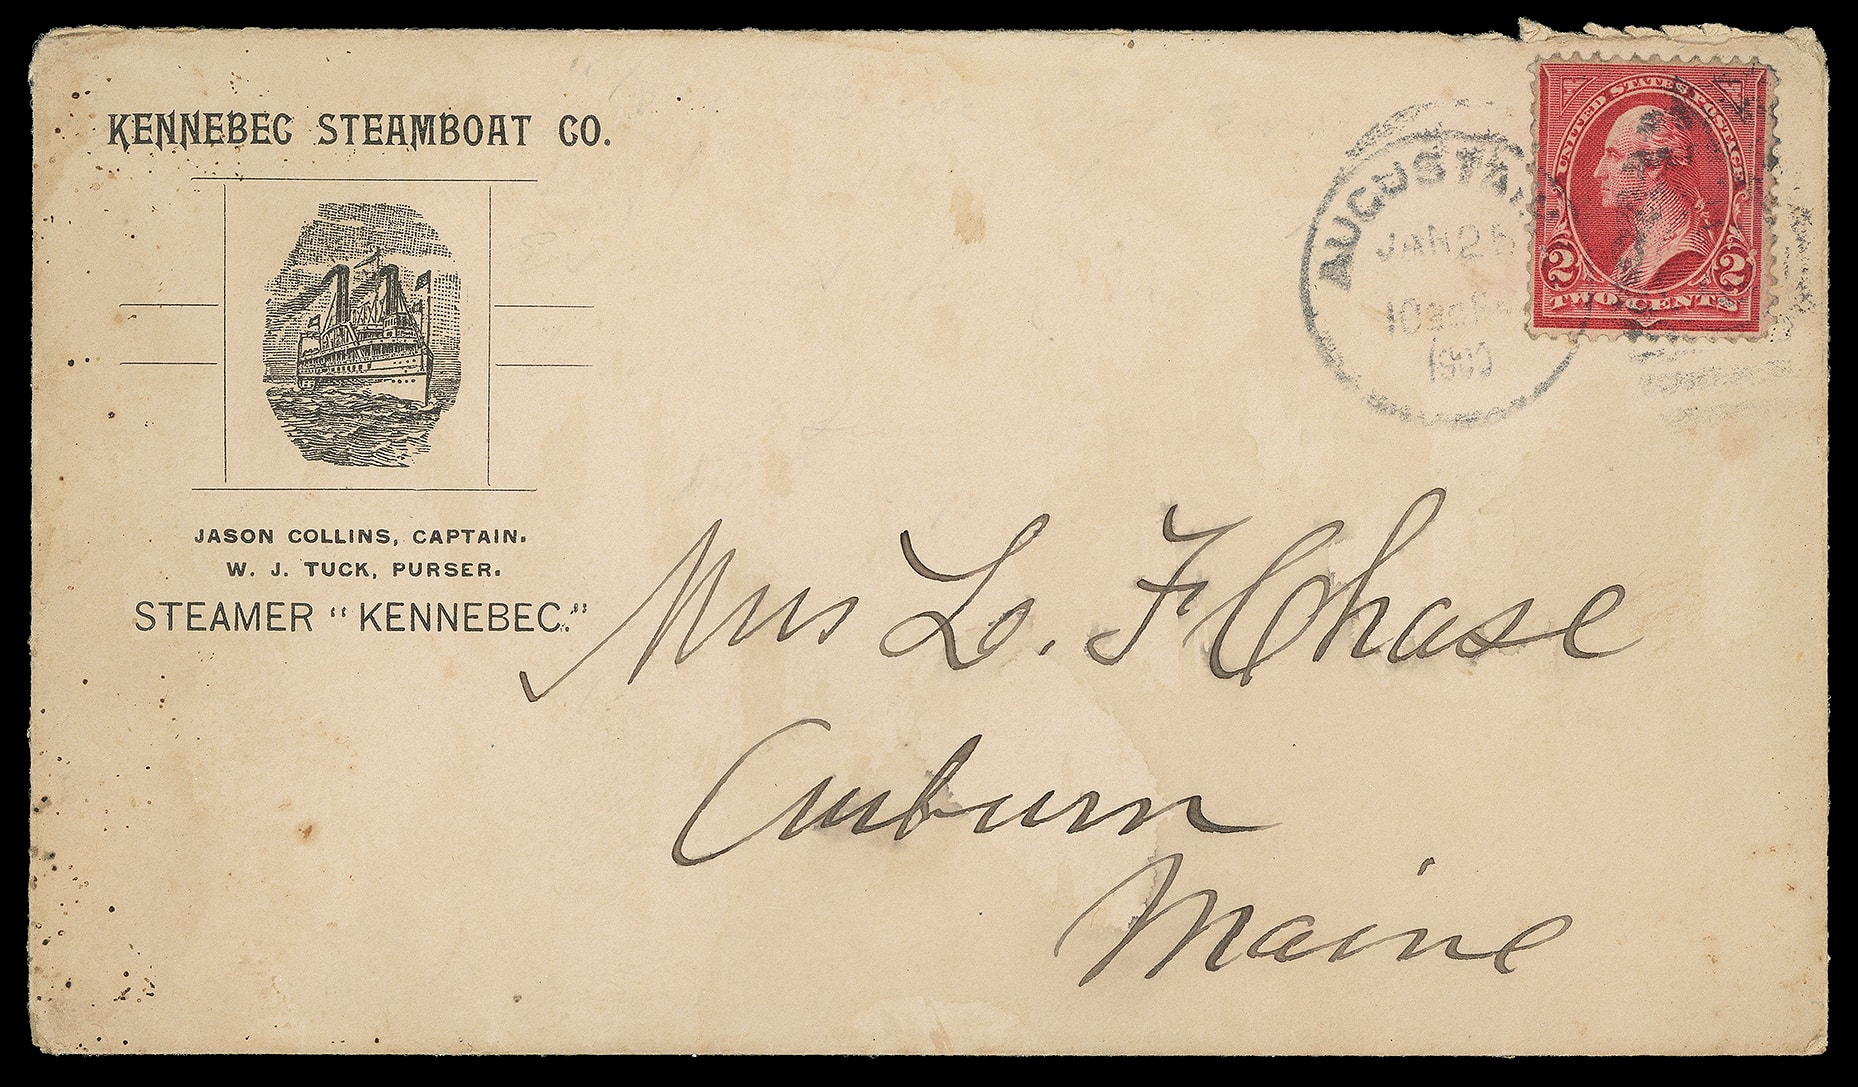 KENNEBEC STEAMBOAT CO.
JASON COLLINS, CAPTAIN.
W. J. TUCK, PURSER.
STEAMER "KENNEBEC."
AUGUSTA
JAN
1900
UNITED STATES POSTAGE
2 2
TWO CENTS
Mrs L. F Chase
Auburn
Maine